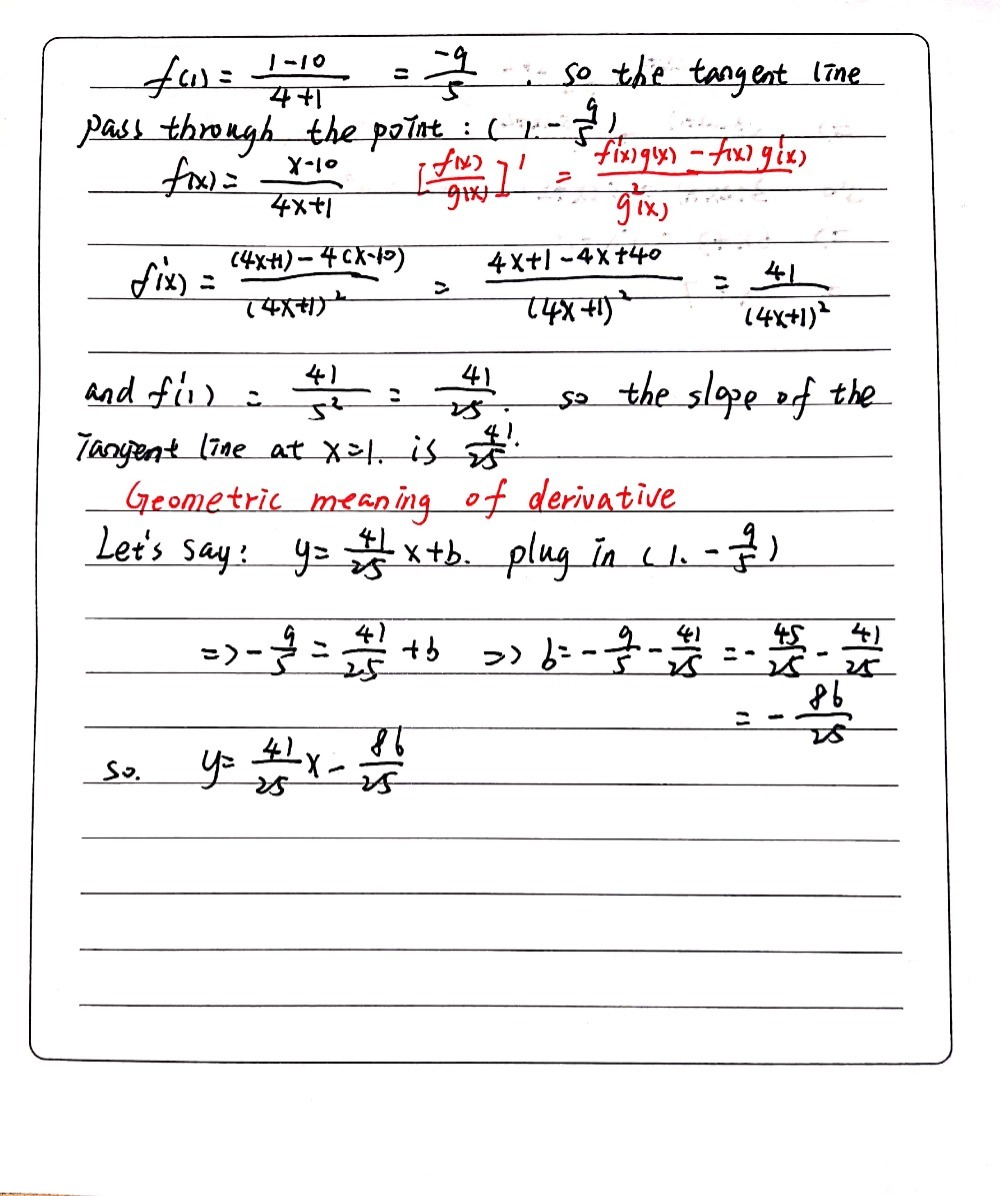 f(1) = \frac{1-10}{4+1} = \frac{-9}{5} . so the tangent line
pass through the point : ( 1. -\frac{9}{5} )
f(x) = \frac{x-10}{4x+1} [\frac{f(x)}{g(x)}]' = \frac{f'(x)g(x) - f(x)g'(x)}{g^2(x)}
f'(x) = \frac{(4x+1) - 4(x-10)}{(4x+1)^2} = \frac{4x+1-4x+40}{(4x+1)^2} = \frac{41}{(4x+1)^2}
and f'(1) = \frac{41}{5^2} = \frac{41}{25}. so the slope of the
Tangent line at x=1. is \frac{41}{25}.
Geometric meaning of derivative
Let's say: y = \frac{41}{25} x + b. plug in ( 1. -\frac{9}{5} )
=> -\frac{9}{5} = \frac{41}{25} + b => b = -\frac{9}{5} - \frac{41}{25} = -\frac{45}{25} - \frac{41}{25}
= -\frac{86}{25}
so. y = \frac{41}{25} x - \frac{86}{25}